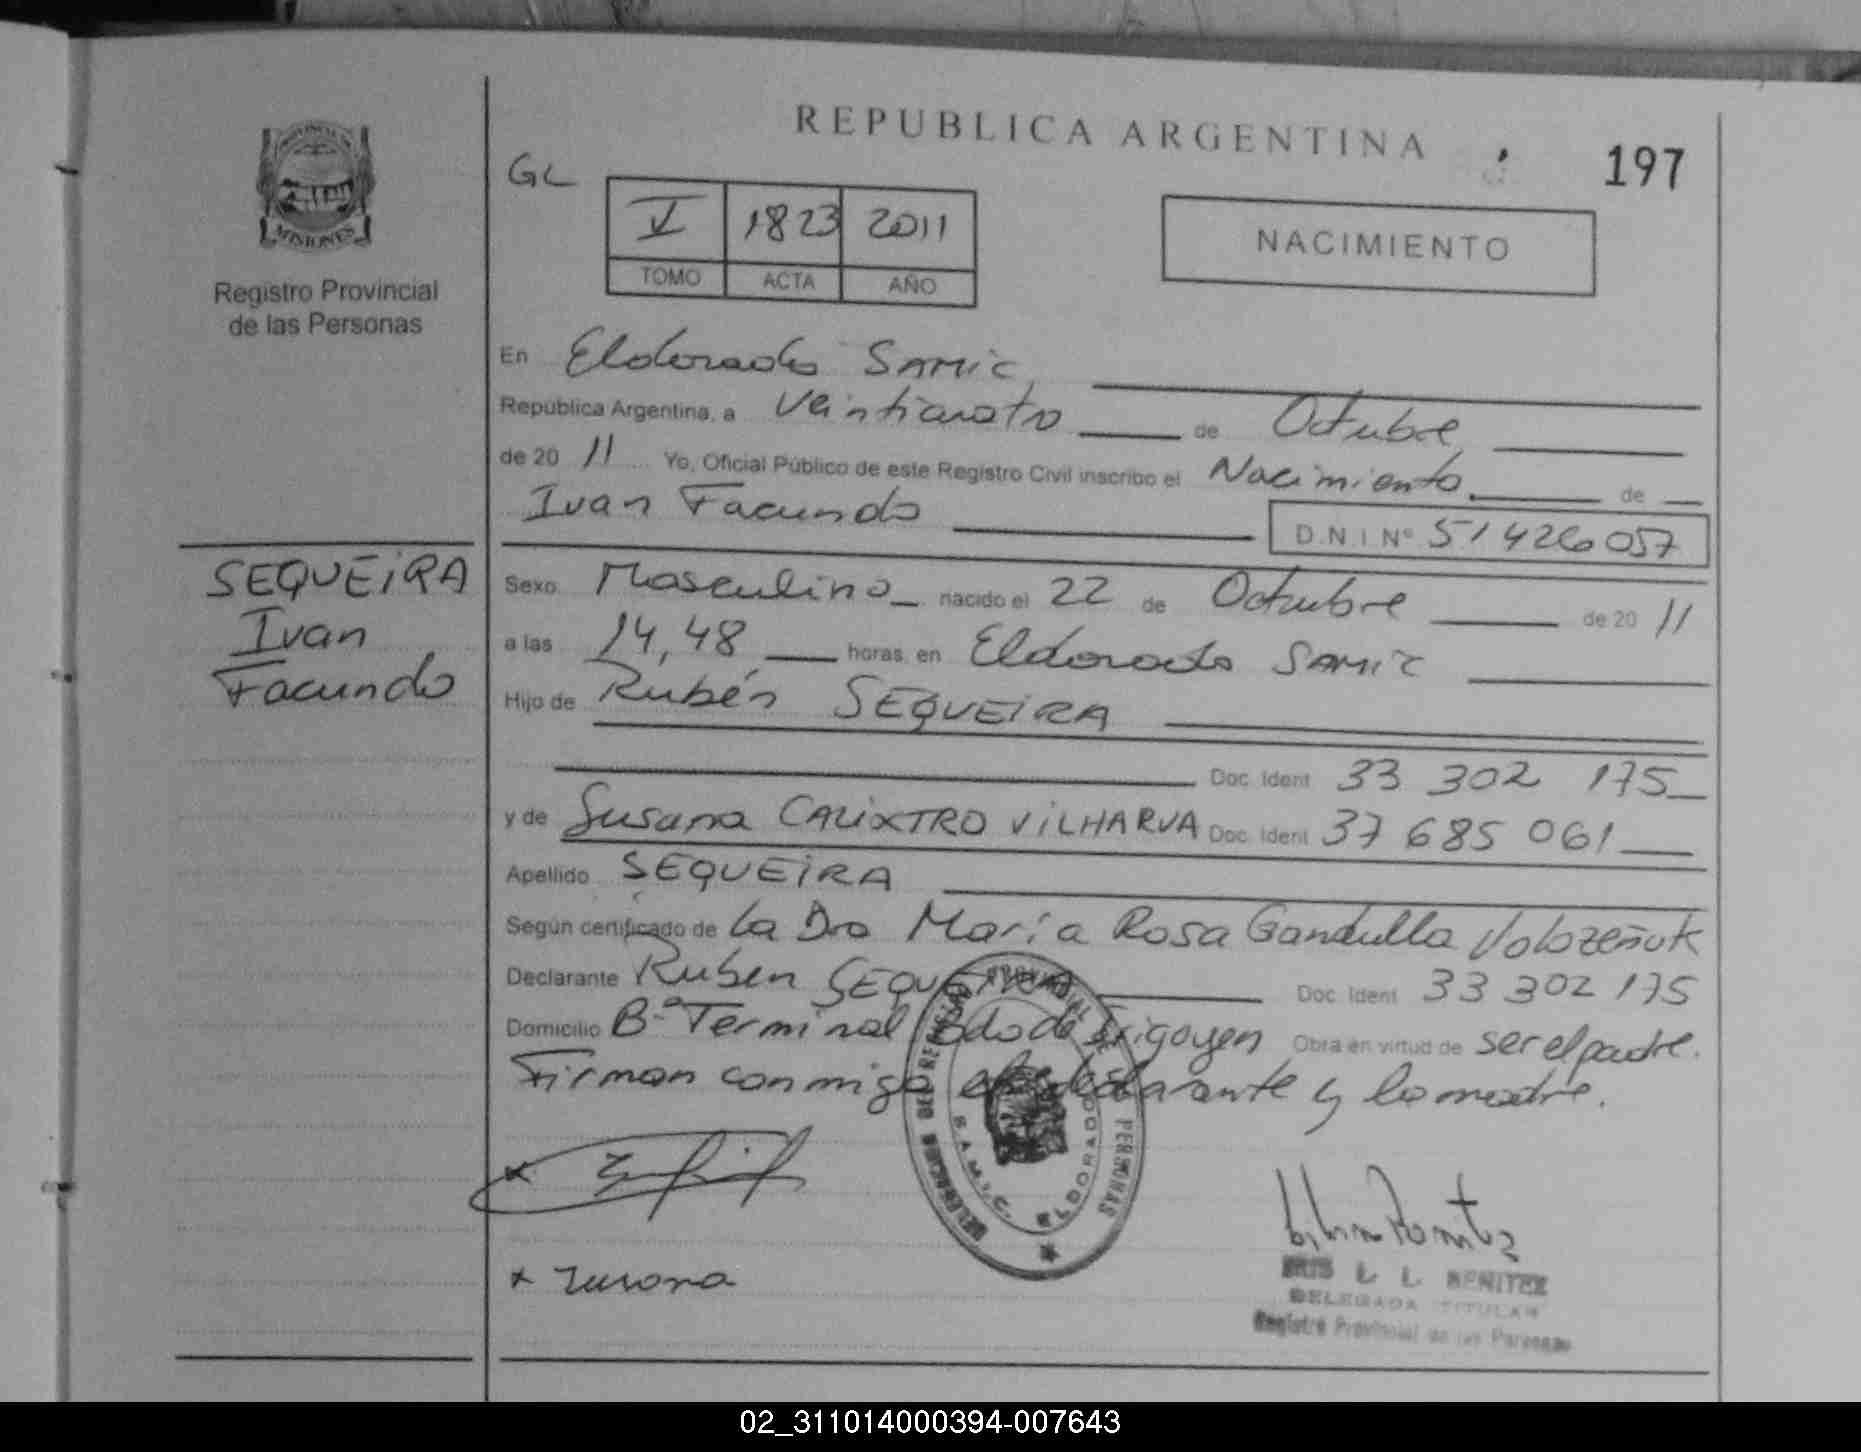 REPUBLICA ARGENTINA
197
GL
V 1823 2011
TOMO ACTA AÑO
NACIMIENTO
MISIONES
Registro Provincial
de las Personas
En Eldorado SAMIC,
República Argentina, a Veinticuatro de Octubre
de 20 11 Yo, Oficial Público de este Registro Civil inscribo el Nacimiento de
Ivan Facundo D.N.I Nº 51426057
SEQUEIRA
Ivan
Facundo
Sexo Masculino nacido el 22 de Octubre de 20 11
a las 14,48 horas, en Eldorado SAMIC
Hijo de Rubén SEQUEIRA
Doc. Ident 33 302 175
y de Susana CALIXTRO VILHARVA Doc. Ident 37 685 061
Apellido SEQUEIRA
Según certificado de la Dra María Rosa Gandulla Volozeñuk
Declarante Ruben SEQUEIRA Doc. Ident 33 302 175
Domicilio Bº Terminal Bdo de Irigoyen Obra en virtud de ser el padre.
Firman conmigo el declarante y la madre.
DELEGACION DEL REGISTRO PROVINCIAL DE LAS PERSONAS
S.A.M.I.C. ELDORADO
x Susana
IRIS L. L. BENITEZ
DELEGADA TITULAR
Registro Provincial de las Personas
02_311014000394-007643